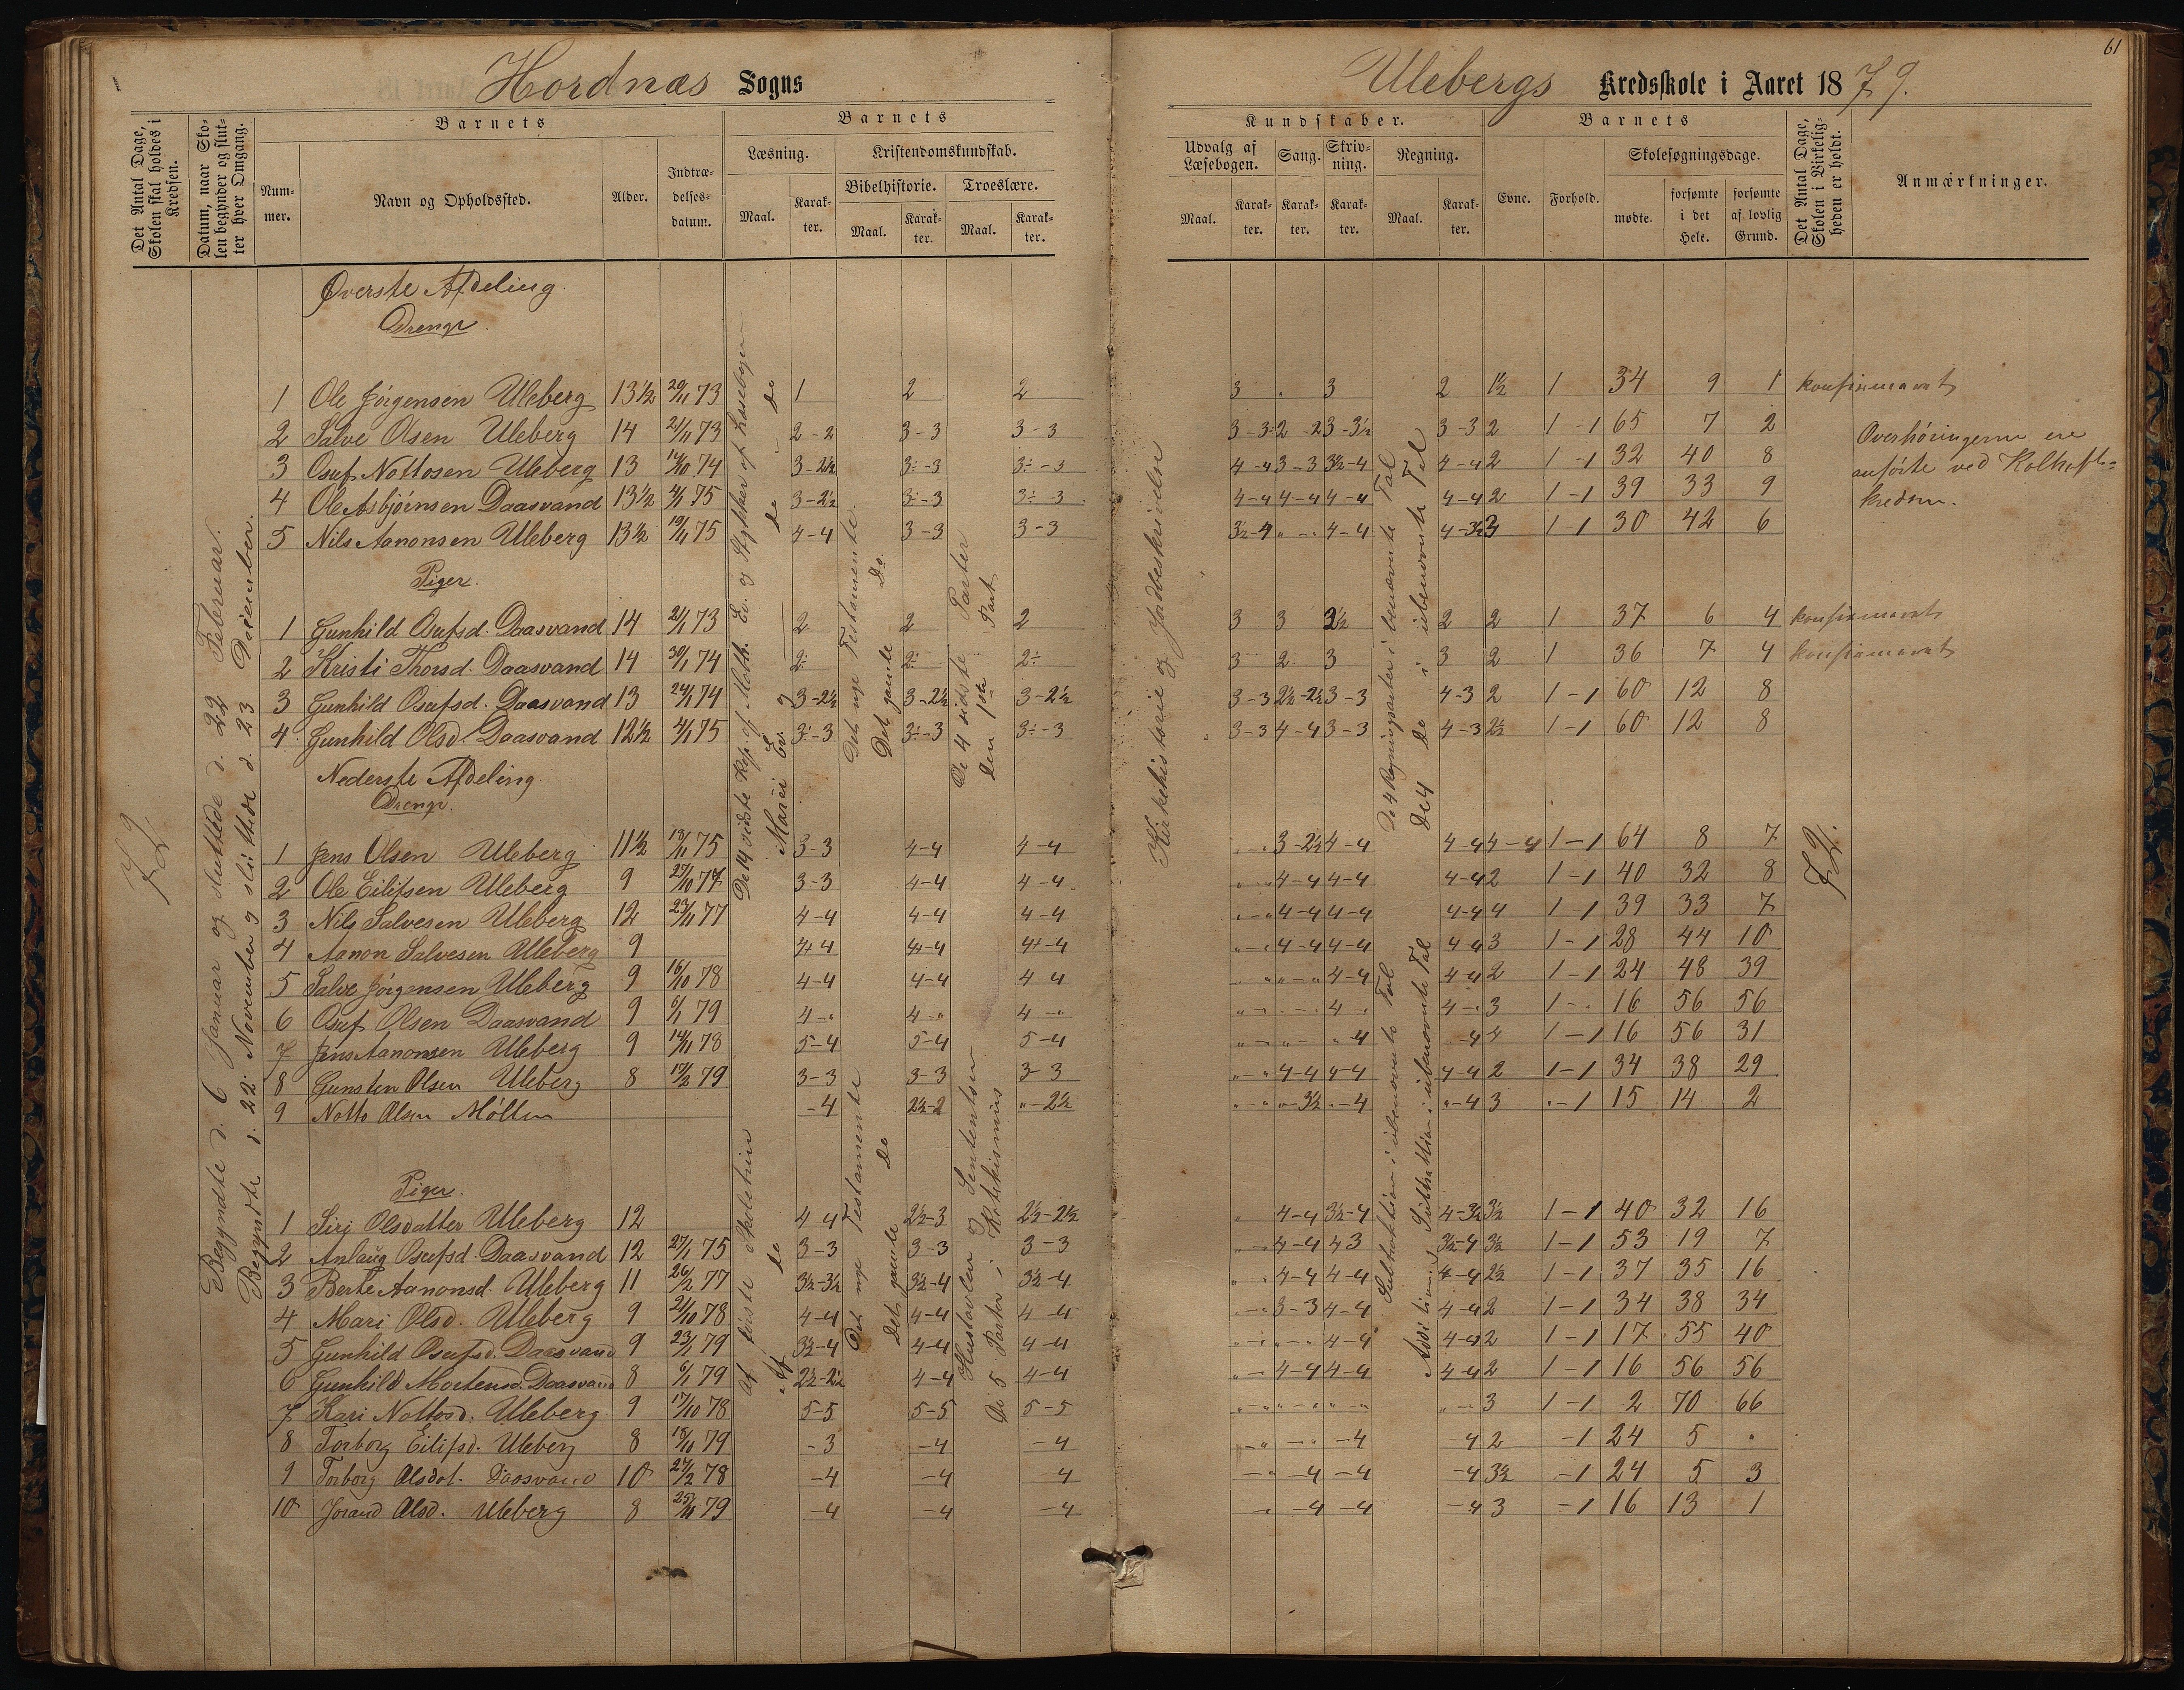 61
Hordnæs Sogns
Ulebergs Kredsskole i Aaret 1879.
Det Antal Dage, Skolen skal holdes i Kredsen.
Datum, naar Skolen begynder og slutter hver Omgang.
Barnets
Nummer.
Navn og Opholdssted.
Alder.
Indtrædelsesdatum.
Barnets
Læsning.
Maal.
Karakter.
Kristendomskundskab.
Bibelhistorie.
Maal.
Karakter.
Troeslære.
Maal.
Karakter.
Kundskaber.
Udvalg af Læsebogen.
Maal.
Karakter.
Sang.
Karakter.
Skrivning.
Karakter.
Regning.
Maal.
Karakter.
Barnets
Evne.
Forhold.
Skolesøgningsdage.
mødte.
forsømte i det Hele.
forsømte af lovlig Grund.
Det Antal Dage, Skolen i Virkeligheden er holdt.
Anmærkninger.
72
Begyndte d. 6 Januar og sluttede d. 22 Februar.
Begyndte d. 22 November og sluttede d. 23 December.
Øverste Afdeling.
Drenge
1 Ole Jörgensen Uleberg 13½ 20/11 73 1 2 2 3 . 3 2 1½ 1 34 9 1 konfirmeret
2 Salve Olsen Uleberg 14 21/11 73 2-2 3-3 3-3 3-3 2-2 3-3½ 3-3 2 1-1 65 7 2
3 Osuf Nottosen Uleberg 13 14/10 74 3-2½ 3÷-3 3÷-3 4-4 3-3 3½-4 4-4 2 1-1 32 40 8
4 Ole Asbjörnsen Daasvand 13½ 4/1 75 3-2½ 3÷-3 3÷-3 4-4 4-4 4-4 4-4 2 1-1 39 33 9
5 Nils Aanonsen Uleberg 13½ 19/11 75 4-4 3-3 3-3 3½-4 „-„ 4-4 4-3½ 3 1-1 30 42 6
Overhöringerne ere
anförte ved Kolhofte-
kredsen.
Piger.
1 Gunhild Osufsd. Daasvand 14 21/1 73 2 2 2 3 3 2½ 2 2 1 37 6 4 konfirmeret
2 Kristi Thorsd. Daasvand 14 30/1 74 2÷ 2÷ 2÷ 3 2 3 3 2 1 36 7 4 konfirmeret
3 Gunhild Osufsd. Daasvand 13 24/1 74 3-2½ 3-2½ 3-2½ 3-3 2½-2½ 3-3 4-3 2 1-1 60 12 8
4 Gunhild Olsd. Daasvand 12½ 4/1 75 3÷-3 3÷-3 3÷-3 3-3 4-4 3-3 4-3 2½ 1-1 60 12 8
De 14 sidste Kap. af Math. Ev. og Stykker af Læsebogen
Marci Ev. og do do
Det nye Testamente.
Det gamle Do.
De 4 sidste Parter
Den 1ste Part
Kirkehistorie og Jordbeskrivelse
De 4 Regningsarter i benævnte Tal
De 4 do i ubenævnte Tal
72.
Nederste Afdeling.
Drenge.
1 Jens Olsen Uleberg 11½ 19/11 75 3-3 4-4 4-4 „-„ 3-2½ 4-4 4-4 4-4 1-1 64 8 7
2 Ole Eilifsen Uleberg 9 27/10 77 3-3 4-4 4-4 „-„ 4-4 4-4 4-4 2 1-1 40 32 8
3 Nils Salvesen Uleberg 12 23/11 77 4-4 4-4 4-4 „-„ 4-4 4-4 4-4 4 1-1 39 33 7
4 Aanon Salvesen Uleberg 9 4+4 4+-4 4+-4 „-„ 4-4 4-4 4-4 3 1-1 28 44 10
5 Salve Jörgensen Uleberg 9 16/10 78 4-4 4-4 4 4 „-„ „-„ 4-4 4-4 2 1-1 24 48 39
6 Osuf Olsen Daasvand 9 6/1 79 4-„ 4-„ 4-„ „-„ „-„ 4-„ 4-„ 3 1-„ 16 56 56
7 Jens Aanonsen Uleberg 9 14/11 78 5-4 5-4 5-4 „-„ „-„ „-4 -4 4 1-1 16 56 31
8 Gunsten Olsen Uleberg 8 17/2 79 3-3 3-3 3-3 „-„ 4-4 4-4 4-4 2 1-1 34 38 29
9 Notto Olsen Möllen -4 2½-2 „-2½ „-„ „-3½ „-4 „-4 3 „-1 15 14 2
Piger.
1 Siri Olsdatter Uleberg 12 4-4 2½-3 2½-2½ „ 4-4 3½-4 4-3½ 3½ 1-1 40 32 16
2 Anlaug Osufsd. Daasvand 12 27/1 75 3-3 3-3 3-3 „-„ 4-4 4 3 3½-4 3½ 1-1 53 19 7
3 Berte Aanonsd. Uleberg 11 26/2 77 3½-3½ 3½-4 3½-4 „-„ 4-4 4-4 4-4 2½ 1-1 37 35 16
4 Mari Olsd. Uleberg 9 21/10 78 4-4 4-4 4-4 „-„ 3-3 4-4 4-4 2 1-1 34 38 34
5 Gunhild Osufsd. Daasvand 9 23/1 79 3½-4 4-4 4-4 „-„ „-„ 4-4 4-4 2 1-1 17 55 40
6 Gunhild Mortensd. Daasvand 8 6/1 79 2½-2½ 4-4 4-4 „-„ 4-4 4-4 4-4 2 1-1 16 56 56
7 Kari Nottosd. Uleberg 9 17/10 78 5-5 5-5 5-5 „-„ „-„ „-„ „-„ 3 1-1 2 70 66
8 Torborg Eilifsd. Uleberg 8 18/10 79 -3 -4 -4 „-„ -„ -4 -4 2 -1 24 5 „
9 Torborg Olsdat. Daasvand 10 27/2 78 -4 -4 -4 -„ -4 -4 -4 3½ -1 24 5 3
10 Jorand Olsd. Uleberg 8 25/11 79 -4 -4 -4 -„ -4 -4 -4 3 -1 16 13 1
Af förste Skoletrin
Af do
Det nye Testamente
Det gamle Do
Hustavlen og Sententser
De 5 Parter i Katekismus
Subtraktion i ubenævnte Tal
Addition og Subtraktion i ubenævnte Tal